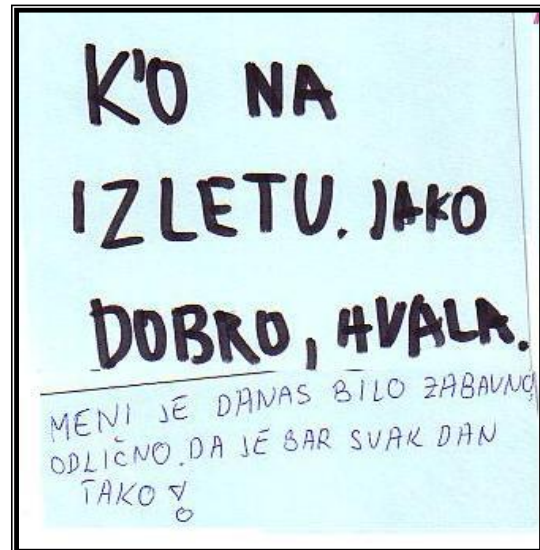 K'O NA
IZLETU. JAKO
DOBRO, HVALA.
MENI JE DANAS BILO ZABAVNO,
ODLIČNO. DA JE BAR SVAK DAN
TAKO!